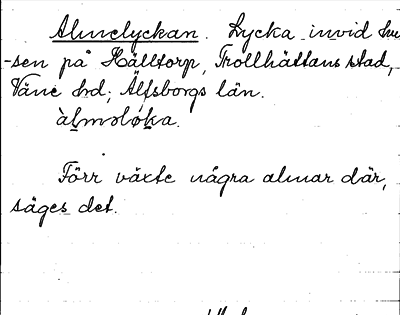 Almelyckan. Lycka invid hu
-sen på Hälltorp, Trollhättans stad,
Väne hd; Älfsborgs län.
àlmelóka.
Förr växte några almar där,
säges det.